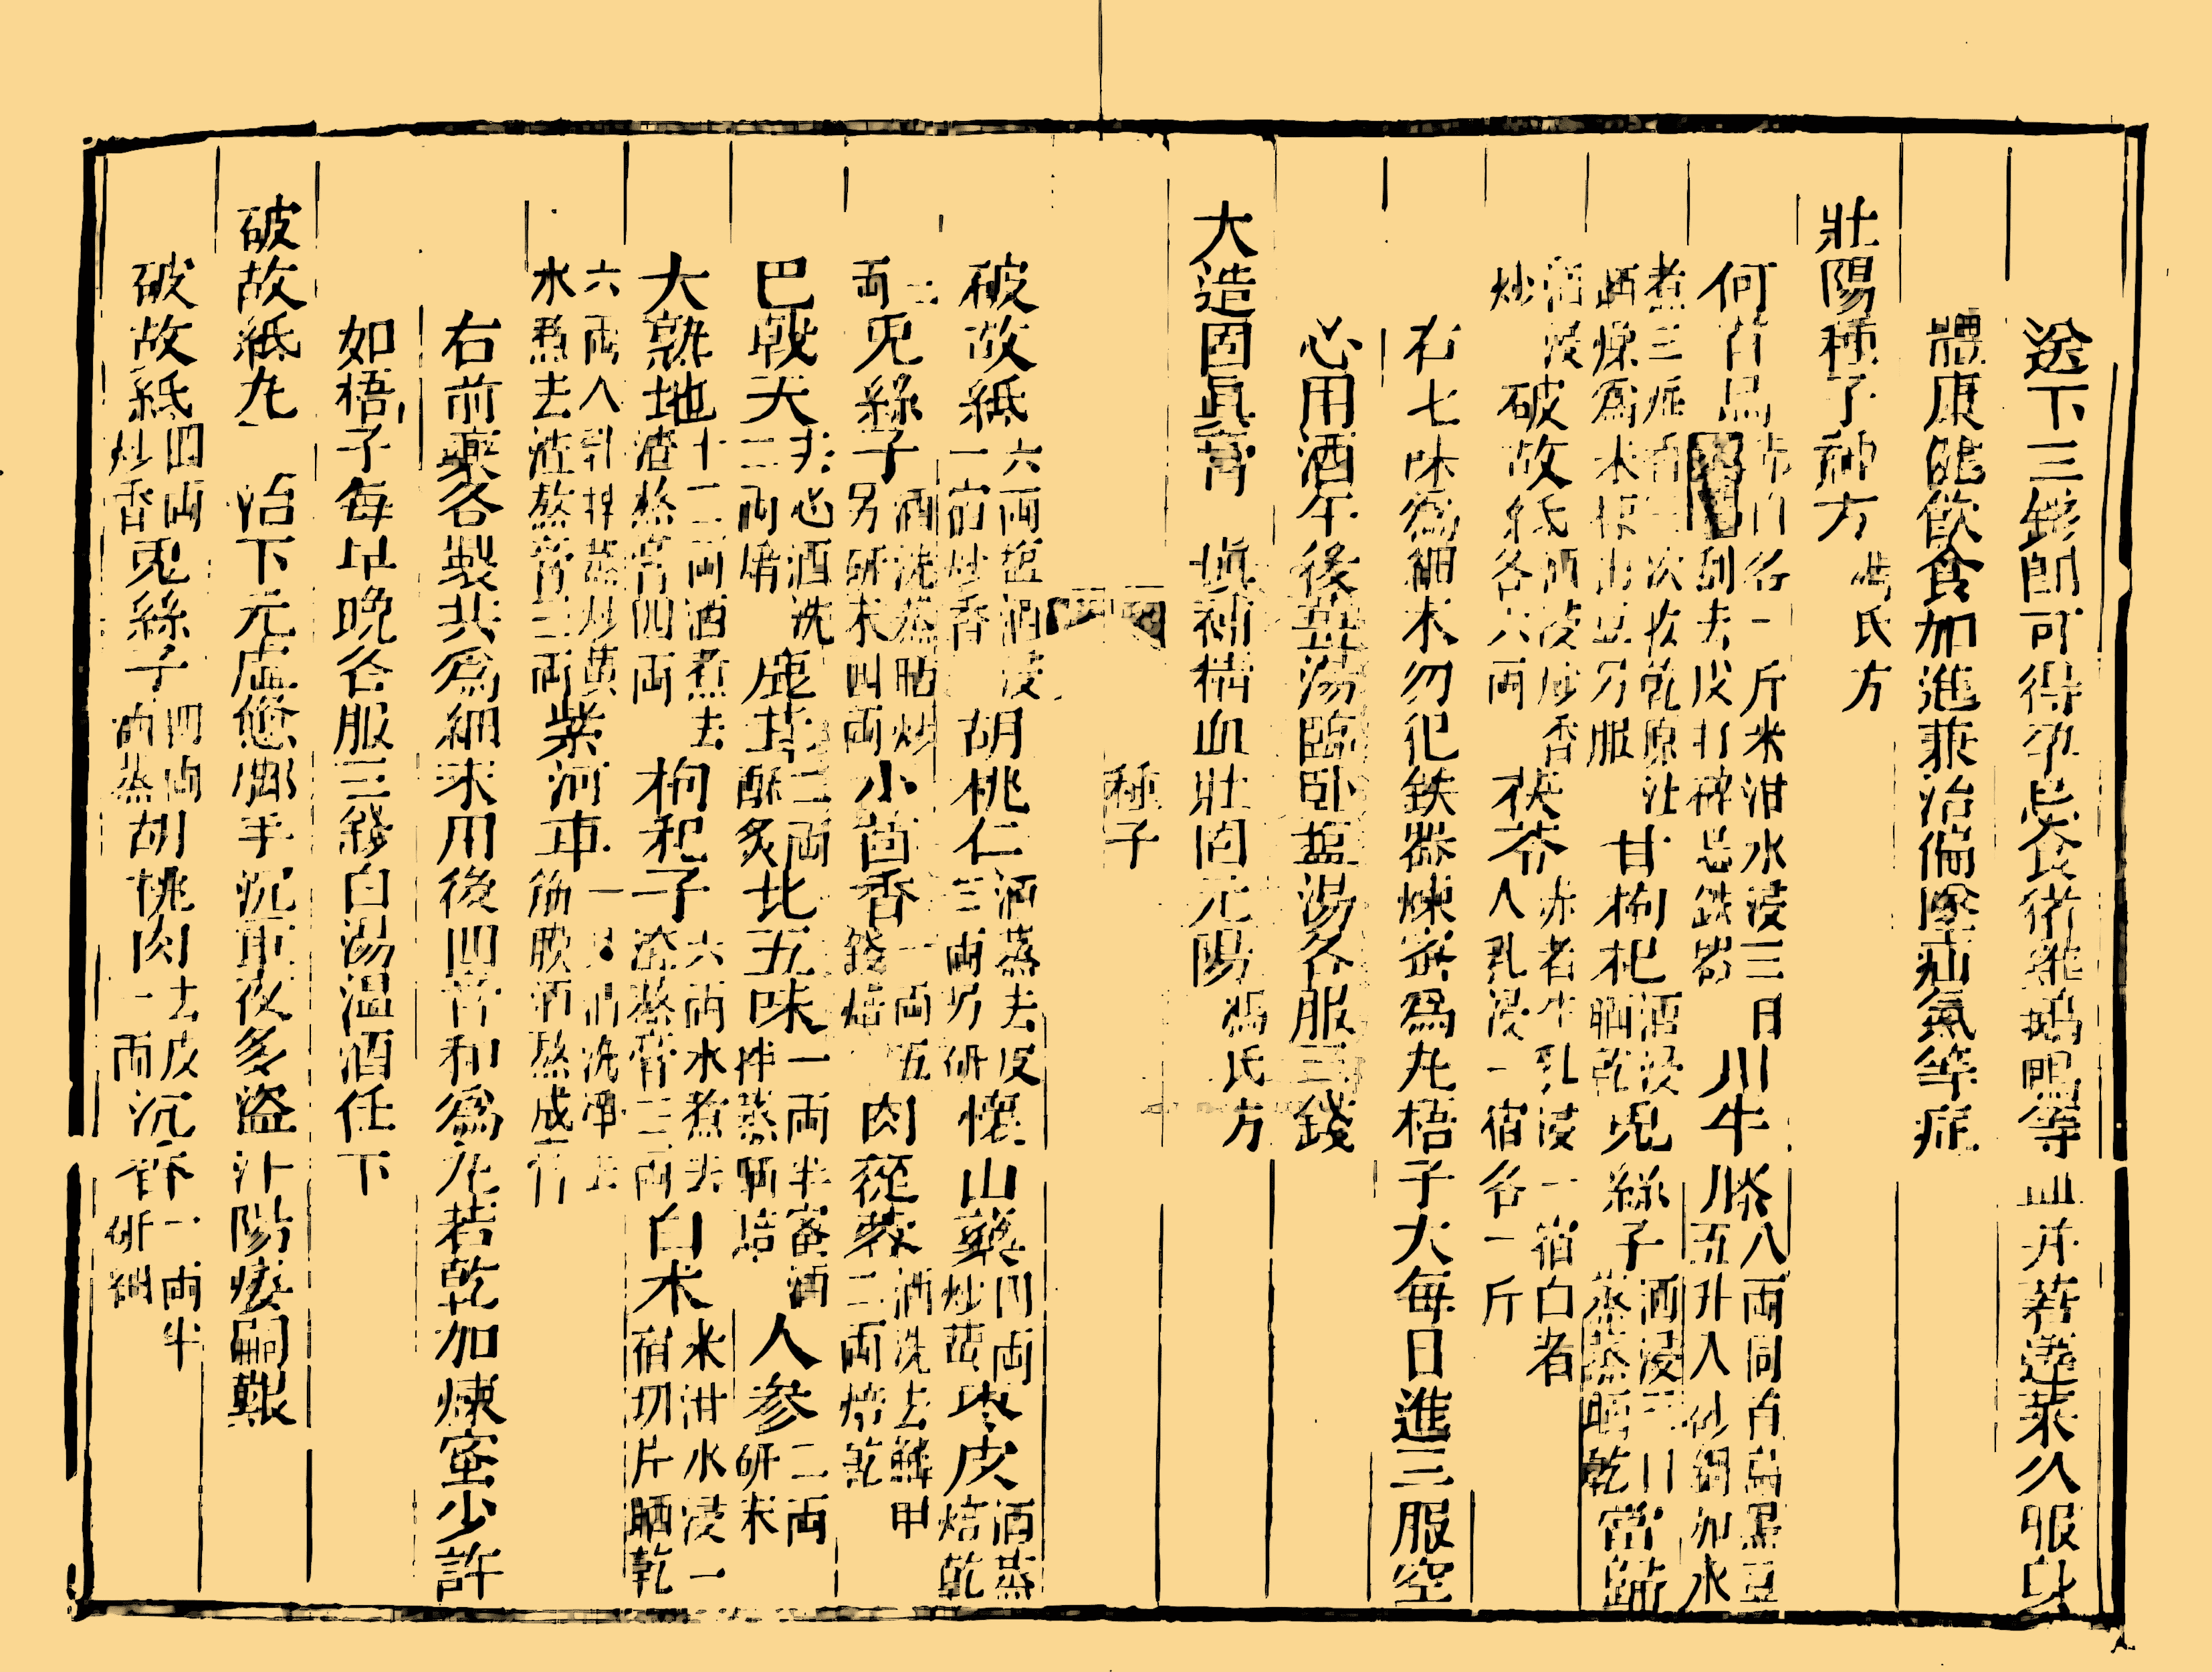 送下三錢即可得孕忌食術雞鵝鴨等血并蓬萊久服身
體康健飲食加進兼治偏墜疝氣等症
壯陽種子神方 馮氏方
何首烏 赤白各一斤米泔水浸三日 刮去皮打碎忌鉄器 川牛膝 八両同首烏黑豆 五升入砂鍋加水
煮三 次收乾原汁 晒燥為末 甘枸杞 酒浸 晒乾 兎絲子 酒浸三日 蒸晒乾 當歸
酒浸 炒 破故紙 酒浸炒香 各六両 茯苓 赤者牛乳浸一宿白者 人乳浸一宿各一斤
右七味為細末勿犯鉄器煉蜜為丸梧子大每日進三服空
心用酒午後薑湯臨卧塩湯各服三錢
大造固真膏 填補精血壯固元陽 馮氏方
種子
破故紙 六両塩酒浸 一宿炒香 胡桃仁 酒蒸去皮 三両另研 懷山藥 四両 炒黃 棗皮 酒蒸 焙乾
二 両 兎絲子 酒洗蒸 炒 另研末四両 小茴香 一両五 錢焙 肉蓯蓉 酒洗去鱗甲 二両焙乾
巴戟天 去心酒洗 二両焙 鹿茸 二両 酥炙 北五味 一両半蜜酒 拌蒸晒焙 人參 二両 研末
大熟地 十二両酒煮去 渣熬膏四両 枸杞子 六両水煮去 渣熬膏三両 白术 米泔水浸一 宿切片晒乾
六両人乳拌蒸炒黃 水煮去渣熬膏三両 紫河車 一具酒洗淨去 筋膜酒熬成膏
右前藥各製共為細末用後四膏和為丸若乾加煉蜜少許
如梧子每早晚各服三錢白湯溫酒任下
破故紙丸 治下元虛憊脚手沉重夜多盜汗陽痿嗣艱
破故紙 四両 炒香 兎絲子 四両 酒蒸 胡桃肉 去皮 一両 沉香 一両半 研細